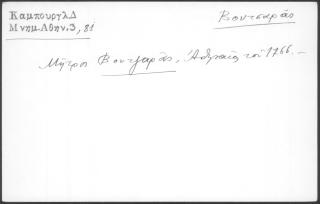 Καμπουργλ Δ
Μνημ. Αθην. 3, 81
Βουτσαράς
Μήτρος Βουτζαράς, Ἀθηναῖος τοῦ 1766. –